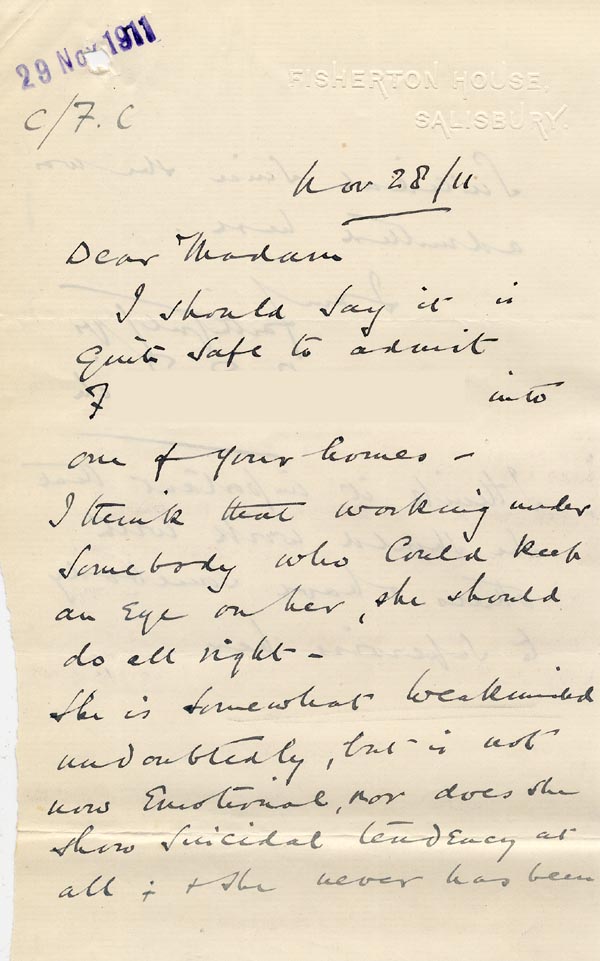 29 Nov 1911
FISHERTON HOUSE,
SALISBURY.
C/F. C
Nov 28/11
Dear Madam
I should say it is
quite safe to admit
F into
one of your homes -
I think that working under
somebody who could keep
an Eye on her, she should
do all right -
She is somewhat weakminded
undoubtedly, but is not
now Emotional, nor does she
show suicidal tendency at
all ; + she never has been